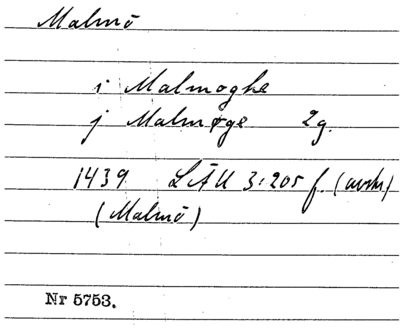 Malmö
i Malmoghe
j Malmøge 2g.
1439 LÄU 3:205 f. (avskr)
(Malmö)
Nr 5753.